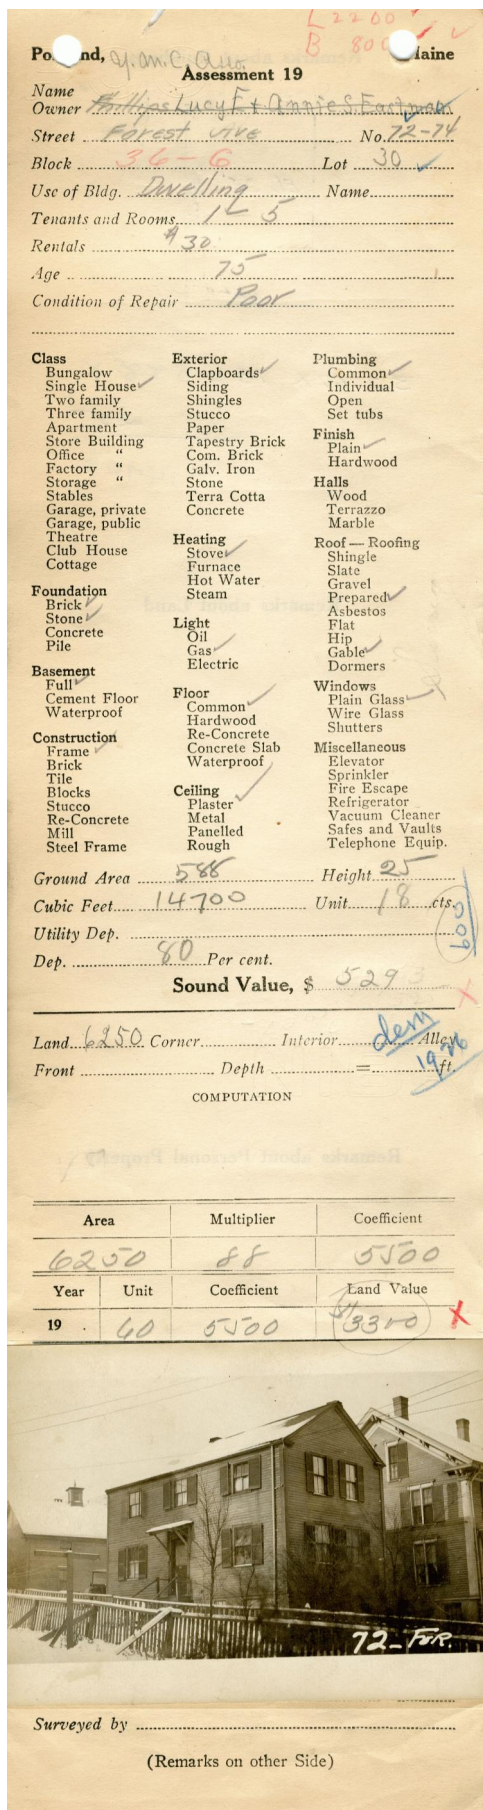 L 2200
B 800
Portland, Y.M.C.A. Maine
Assessment 19
Name
Owner Phillips Lucy E + Annie S. Eastman
Street Forest Ave No. 72-74
Block 36-G Lot 30
Use of Bldg. Dwelling Name
Tenants and Rooms 1 - 5
Rentals $30
Age 75
Condition of Repair Poor
Class
Bungalow
Single House ✓
Two family
Three family
Apartment
Store Building
Office "
Factory "
Storage "
Stables
Garage, private
Garage, public
Theatre
Club House
Cottage
Foundation
Brick ✓
Stone ✓
Concrete
Pile
Basement
Full ✓
Cement Floor
Waterproof
Construction
Frame ✓
Brick
Tile
Blocks
Stucco
Re-Concrete
Mill
Steel Frame
Exterior
Clapboards ✓
Siding
Shingles
Stucco
Paper
Tapestry Brick
Com. Brick
Galv. Iron
Stone
Terra Cotta
Concrete
Heating
Stove ✓
Furnace
Hot Water
Steam
Light
Oil
Gas ✓
Electric
Floor
Common ✓
Hardwood
Re-Concrete
Concrete Slab
Waterproof
Ceiling
Plaster ✓
Metal
Panelled
Rough
Plumbing
Common ✓
Individual
Open
Set tubs
Finish
Plain ✓
Hardwood
Halls
Wood
Terrazzo
Marble
Roof — Roofing
Shingle
Slate
Gravel
Prepared ✓
Asbestos
Flat
Hip
Gable ✓
Dormers
Windows
Plain Glass ✓
Wire Glass
Shutters
Miscellaneous
Elevator
Sprinkler
Fire Escape
Refrigerator
Vacuum Cleaner
Safes and Vaults
Telephone Equip.
Ground Area 588 Height 25
Cubic Feet 14700 Unit 18 cts.
Utility Dep.
600
Dep. 80 Per cent.
Sound Value, $ 529
Land 6250 Corner Interior Alley
dem
1926
Front Depth = ft.
COMPUTATION
Area Multiplier Coefficient
6250 88 5500
Year Unit Coefficient Land Value
19 . 60 5500 3300 X
72-FOR.
Surveyed by
(Remarks on other Side)